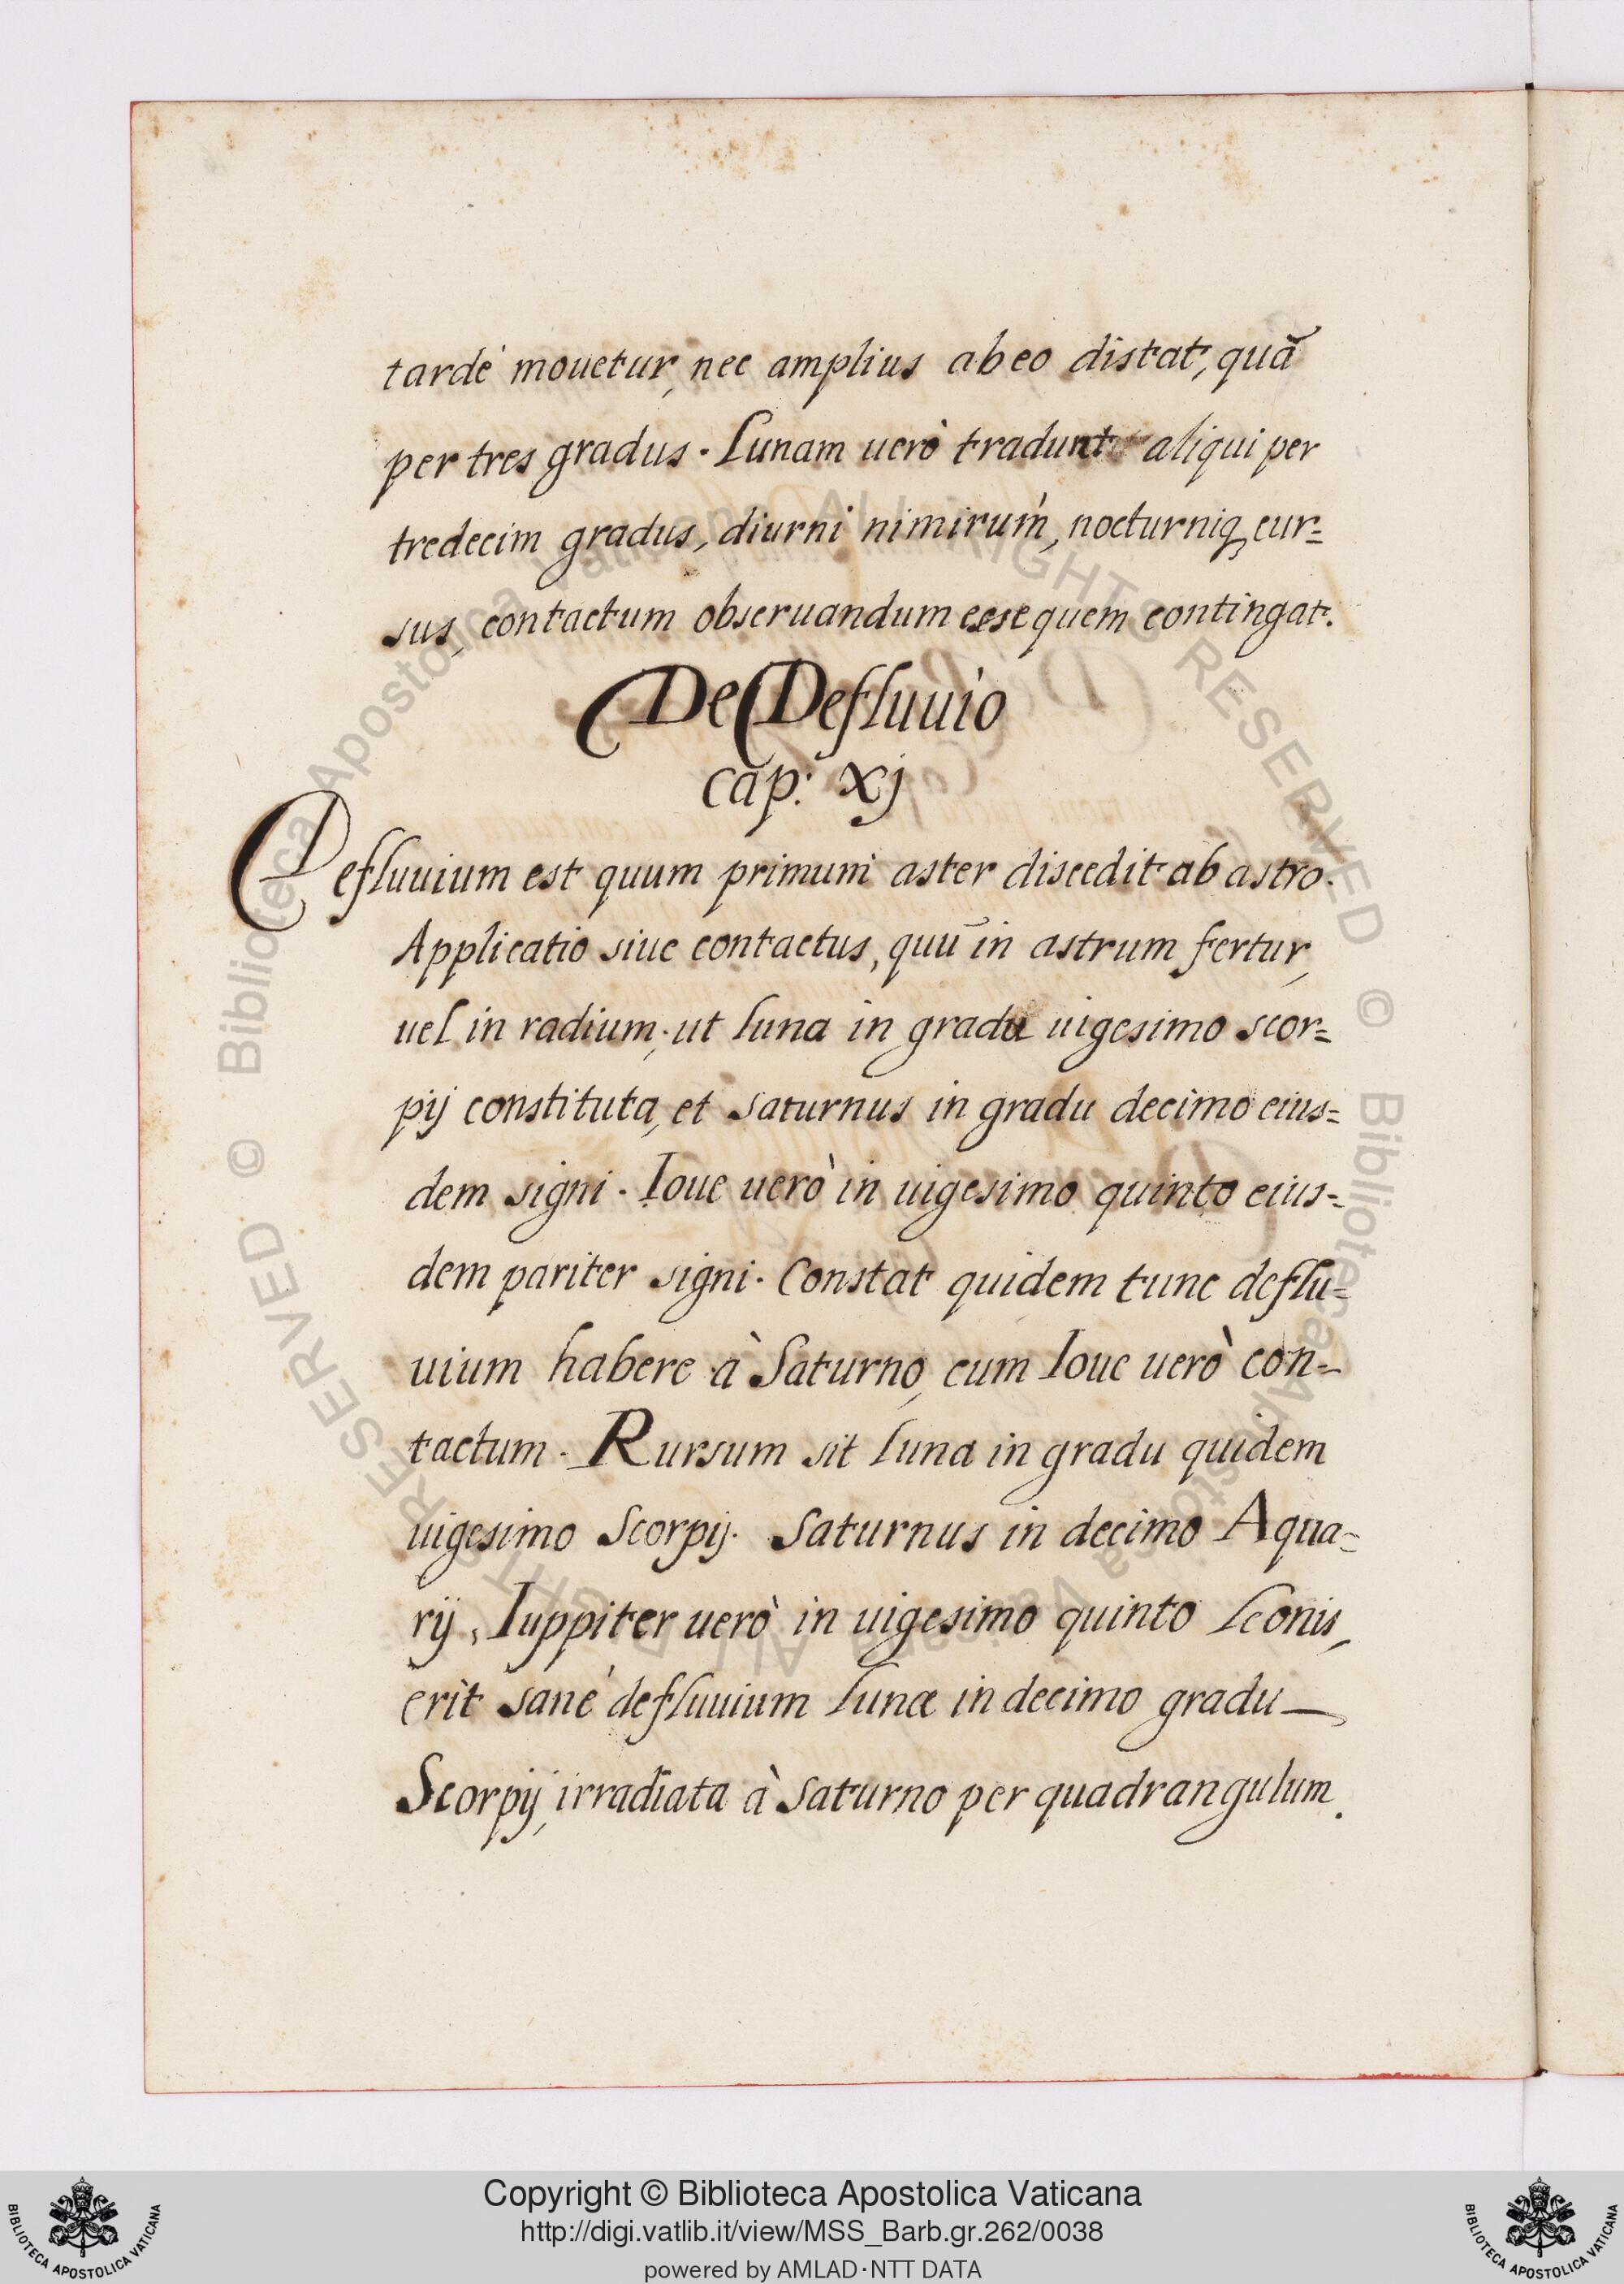 tardè mouetur, nec amplius ab eo distat, quã
per tres gradus. Lunam uerò tradunt aliqui per
tredecim gradus, diurni nimirum, nocturniq; cur=
sus, contactum obseruandum esse quem contingat.
De Defluuio
cap: xj
Defluuium est quum primum aster discedit ab astro.
Applicatio siue contactus, quũ in astrum fertur,
uel in radium; ut luna in gradu uigesimo scor=
pij constituta, et saturnus in gradu decimo eius=
dem signi. Ioue uerò in uigesimo quinto eius=
dem pariter signi. Constat quidem tunc deflu=
uium habere à Saturno, cum Ioue uerò con=
tactum. Rursum sit luna in gradu quidem
uigesimo Scorpij. Saturnus in decimo Aqua=
rij, Iuppiter uerò in uigesimo quinto leonis,
erit sanè defluuium lunæ in decimo gradu
Scorpij, irradiata à Saturno per quadrangulum.
Copyright © Biblioteca Apostolica Vaticana
http://digi.vatlib.it/view/MSS_Barb.gr.262/0038
powered by AMLAD·NTT DATA
BIBLIOTECA APOSTOLICA VATICANA
BIBLIOTECA APOSTOLICA VATICANA
© Biblioteca Apostolica Vaticana ALL RIGHTS RESERVED
© Biblioteca Apostolica Vaticana ALL RIGHTS RESERVED